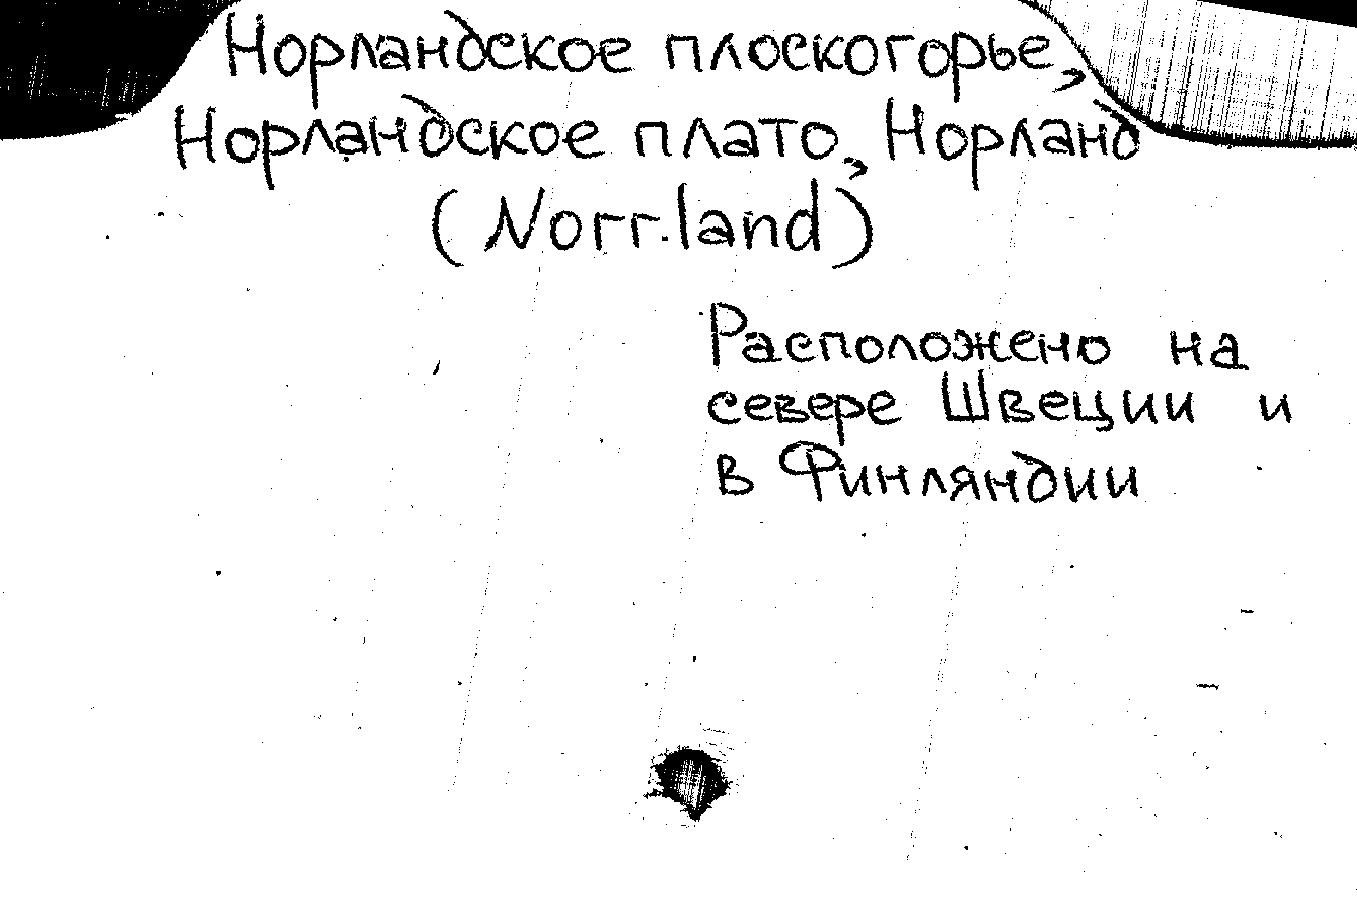 Норландское плоскогорье,
Норландское плато, Норланд
(Norrland)
Расположено на
севере Швеции и
в Финляндии